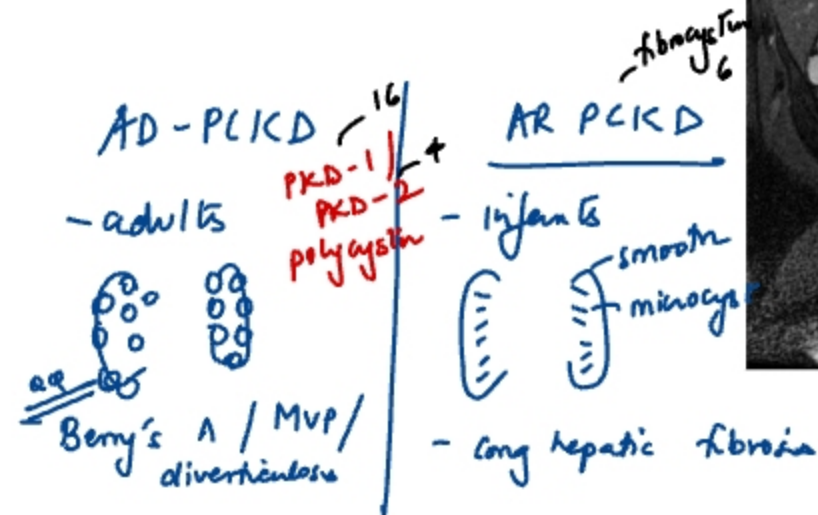 AD-PCKD
16
PKD-1
4
PKD-2
polycystin
- adults
Berry's ^ / MVP /
diverticulosis
fibrocystin
6
AR PCKD
- infants
smooth
microcyst
- cong hepatic fibrosis